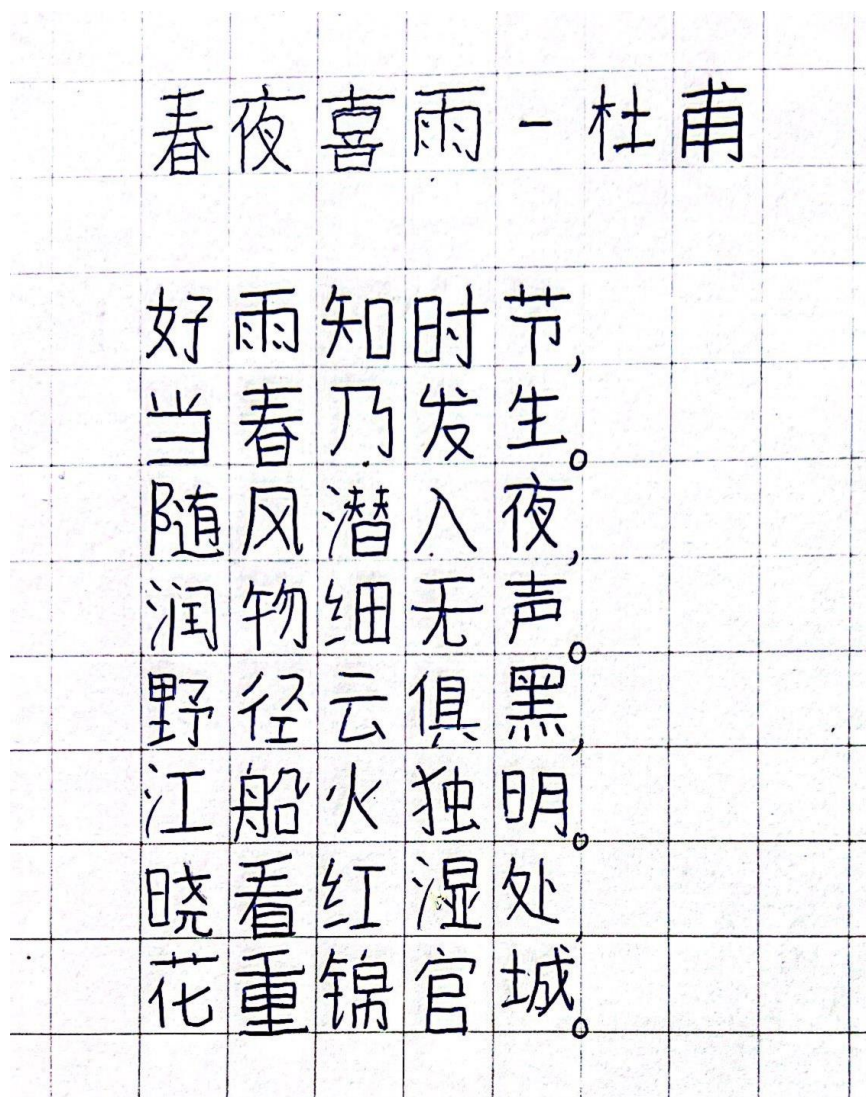 春夜喜雨-杜甫
好雨知时节,
当春乃发生。
随风潜入夜,
润物细无声。
野径云俱黑,
江船火独明。
晓看红湿处,
花重锦官城。